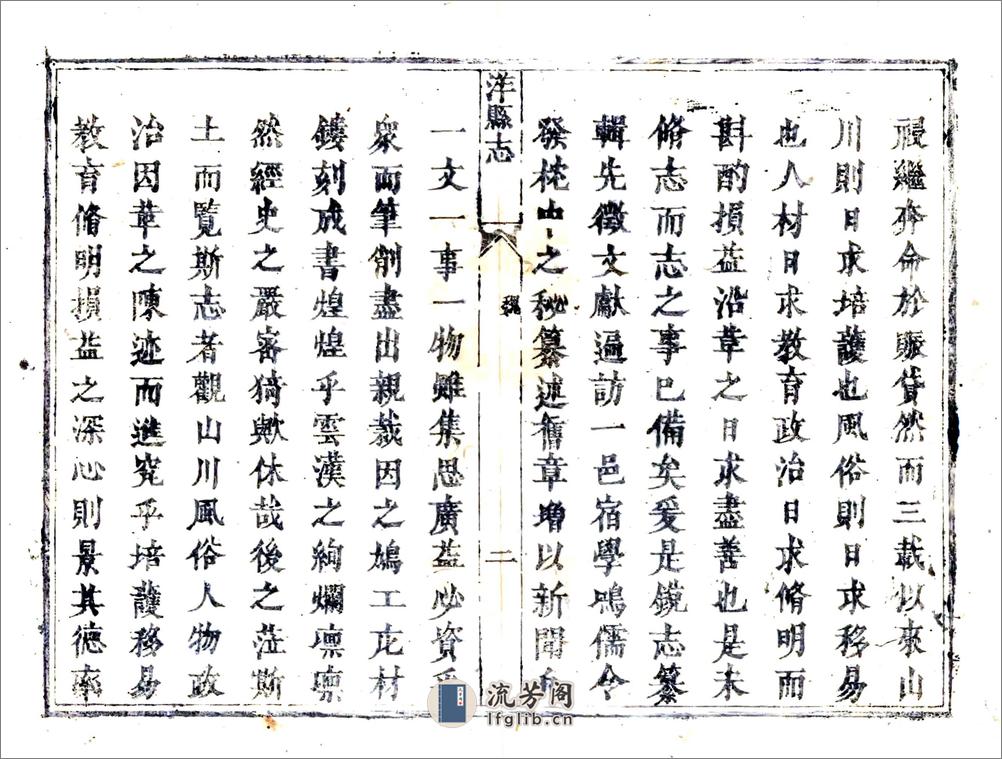 祲繼奔命於賑貸然而三載以來山
川則日求培護也風俗則日求移易
也人材日求教育政治日求脩明而
斟酌損益沿革之日求盡善也是未
脩志而志之事已備矣爰是銳志纂
輯先徵文獻遍訪一邑宿學鳴儒令
發枕中之秘纂述舊章增以新聞
洋縣志
魏
二
一文一事一物雖集思廣益必資
衆而筆削盡出親裁因之鳩工庀材
鏤刻成書煌煌乎雲漢之絢爛凛凛
然經史之嚴密猗歟休哉後之蒞斯
土而覽斯志者觀山川風俗人物政
治因革之陳迹而進究乎培護移易
教育脩明損益之深心則景其德率
流芳阁
lfglib.cn